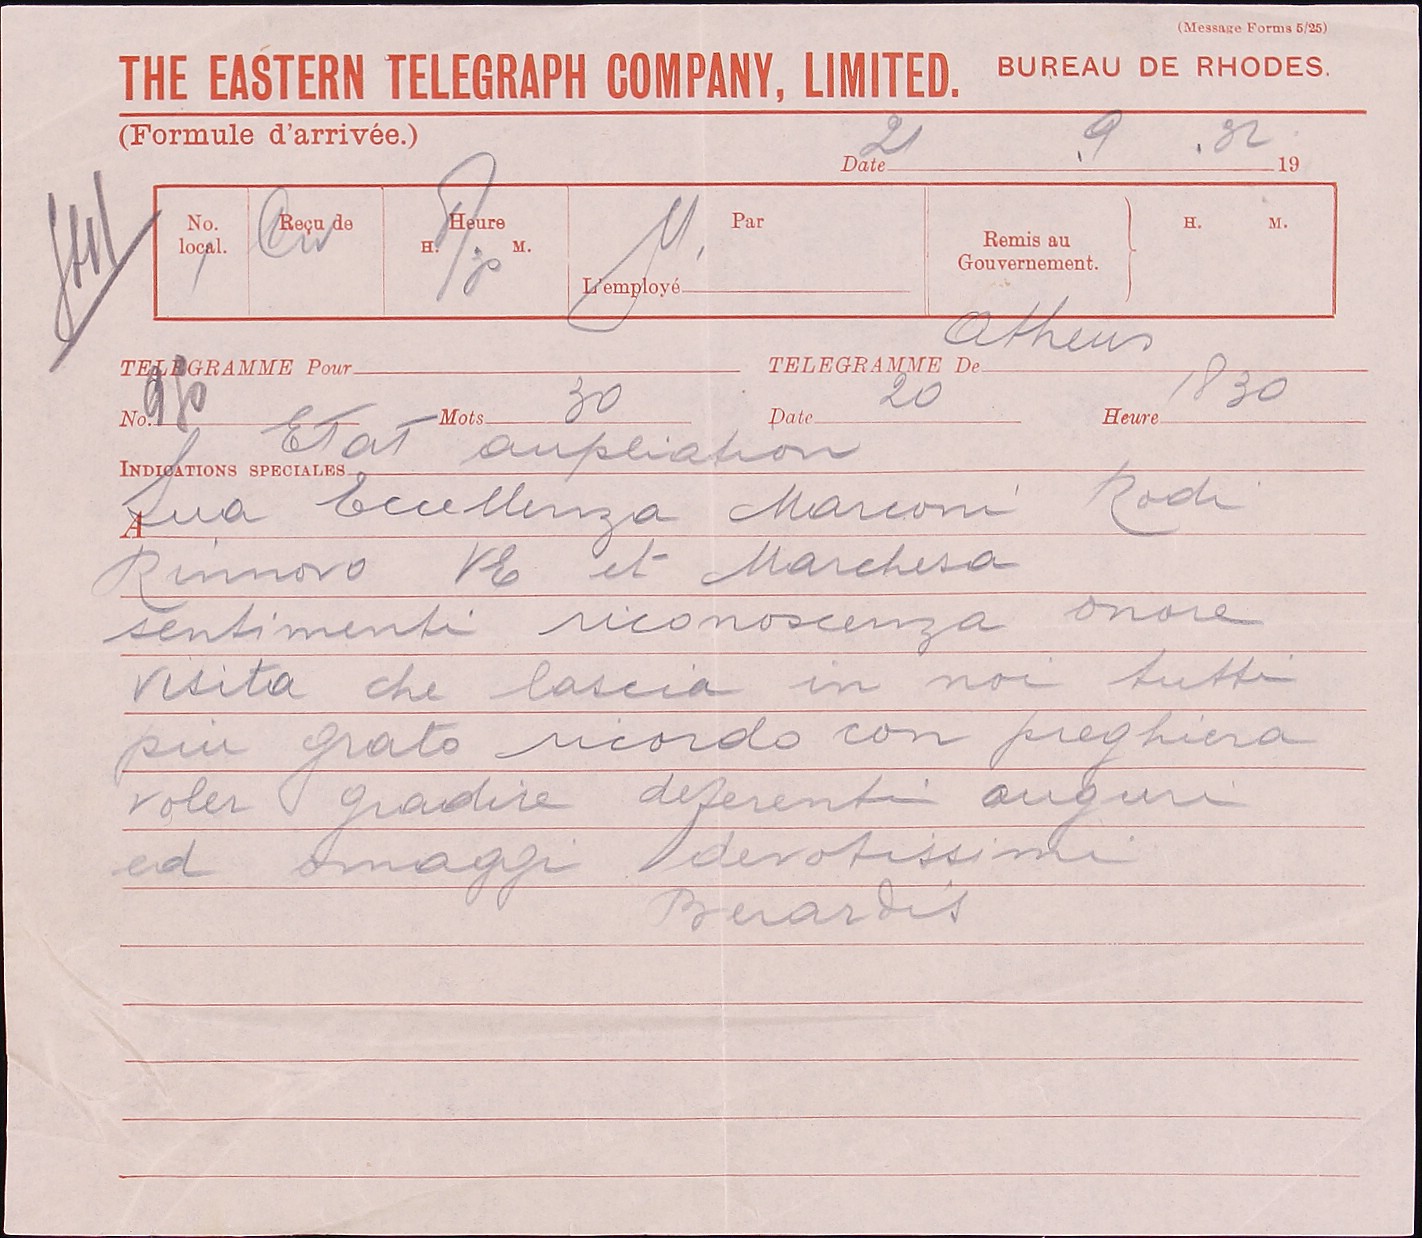 (Message Forms 5/25)
THE EASTERN TELEGRAPH COMPANY, LIMITED. BUREAU DE RHODES.
(Formule d'arrivée.)
Date 21 . 9 . 32 19
No. local. 1 Reçu de Heure H. M. 30 Par L'employé Remis au Gouvernement. H. M.
Athens
TELEGRAMME Pour TELEGRAMME De
No. 980 Mots 30 Date 20 Heure 1830
Etat ampliation
INDICATIONS SPECIALES
A Sua Eccellenza Marconi Rodi
Rinnovo VE et Marchesa
sentimenti riconoscenza onore
visita che lascia in noi tutti
piu grato ricordo con preghiera
voler gradire deferenti auguri
ed omaggi devotissimi
Berardis